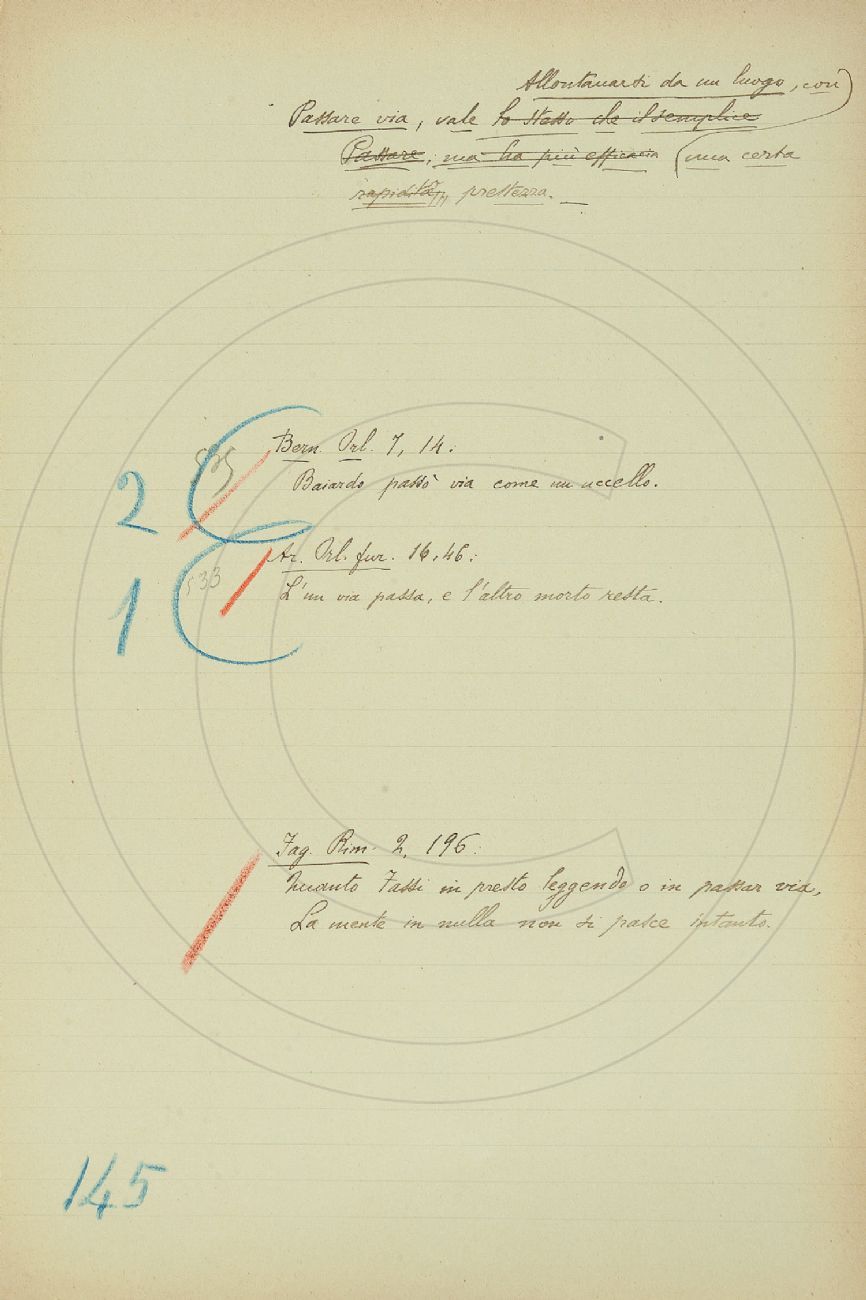 Allontanarsi da un luogo, con
Passare via, vale lo stesso che il semplice
Passare; ma ha più efficacia una certa
rapidità, prestezza.
Bern. Orl. 7, 14:
Baiardo passò via come un uccello.
2
Ar. Orl. fur. 16, 46:
533
L'un via passa, e l'altro morto resta.
1
Fag. Rim. 2, 196:
Quanto fassi in presto leggendo o in passar via,
La mente in nulla non si pasce intanto.
145